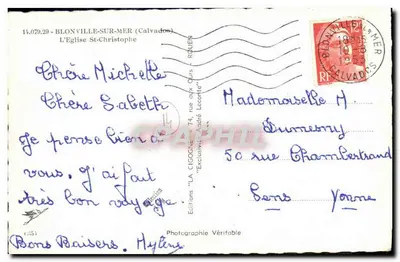 14.079.29 - BLONVILLE-SUR-MER (Calvados)
L'Eglise St-Christophe
Chère Michelle
Chère Babeth
Je pense bien à
vous. J'ai fait
très bon voyage.
Bons Baisers. Mylène
14
Editions "LA CIGOGNE", 74, rue aux Ours - ROUEN
"Exclusivité
Photographie Véritable
BLONVILLE S MER
CALVADOS
RF
Mademoiselle M.
Dumesny
50 rue Chambertrand
Sens Yonne